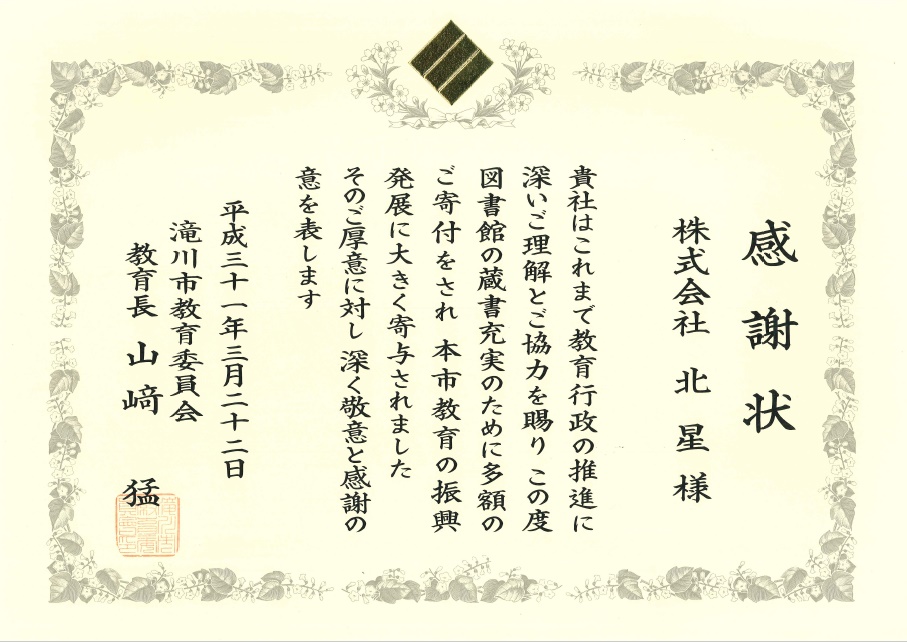 感謝状
株式会社 北星 様
貴社はこれまで教育行政の推進に
深いご理解とご協力を賜り この度
図書館の蔵書充実のために多額の
ご寄付をされ 本市教育の振興
発展に大きく寄与されました
そのご厚意に対し 深く敬意と感謝の
意を表します
平成三十一年三月二十二日
滝川市教育委員会
教育長 山﨑 猛